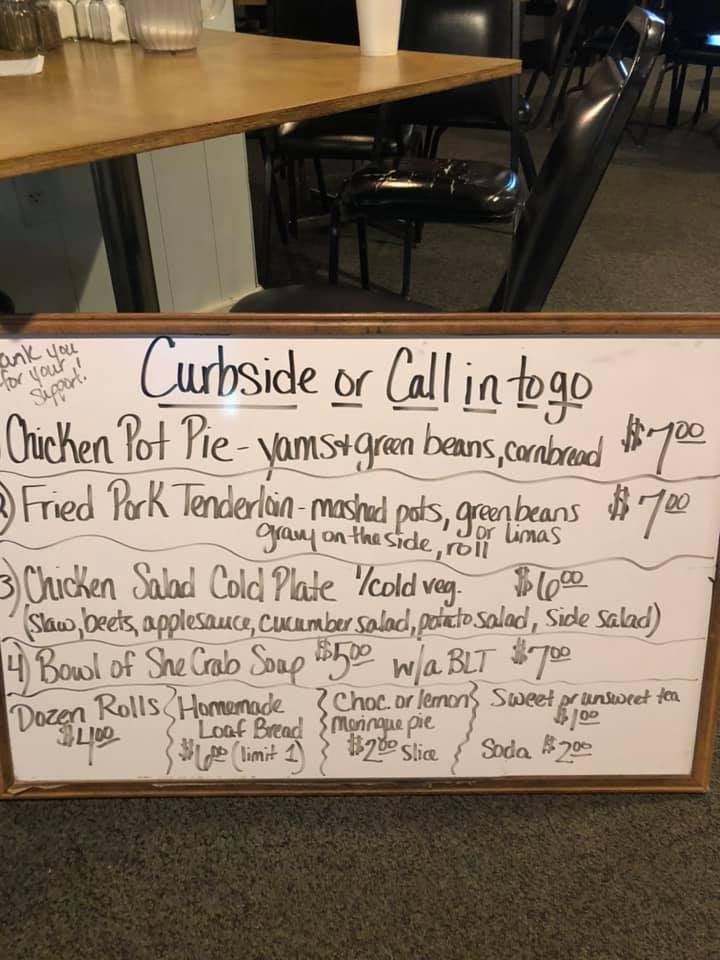 ank you
for your
Support!
Curbside or Call in to go
Chicken Pot Pie - yams + green beans, cornbread $7.00
2) Fried Pork Tenderloin - mashed pots, greenbeans $7.00
gravy on the side, roll or limas
3) Chicken Salad Cold Plate 1/cold veg. $6.00
(slaw, beets, applesauce, cucumber salad, potato salad, side salad)
4) Bowl of She Crab Soup $5.00 w/a BLT $7.00
Dozen Rolls
$4.00
Homemade
Loaf Bread
$6.00 (limit 1)
Choc. or lemon
meringue pie
$2.00 slice
Sweet or unsweet tea
$1.00
Soda $2.00